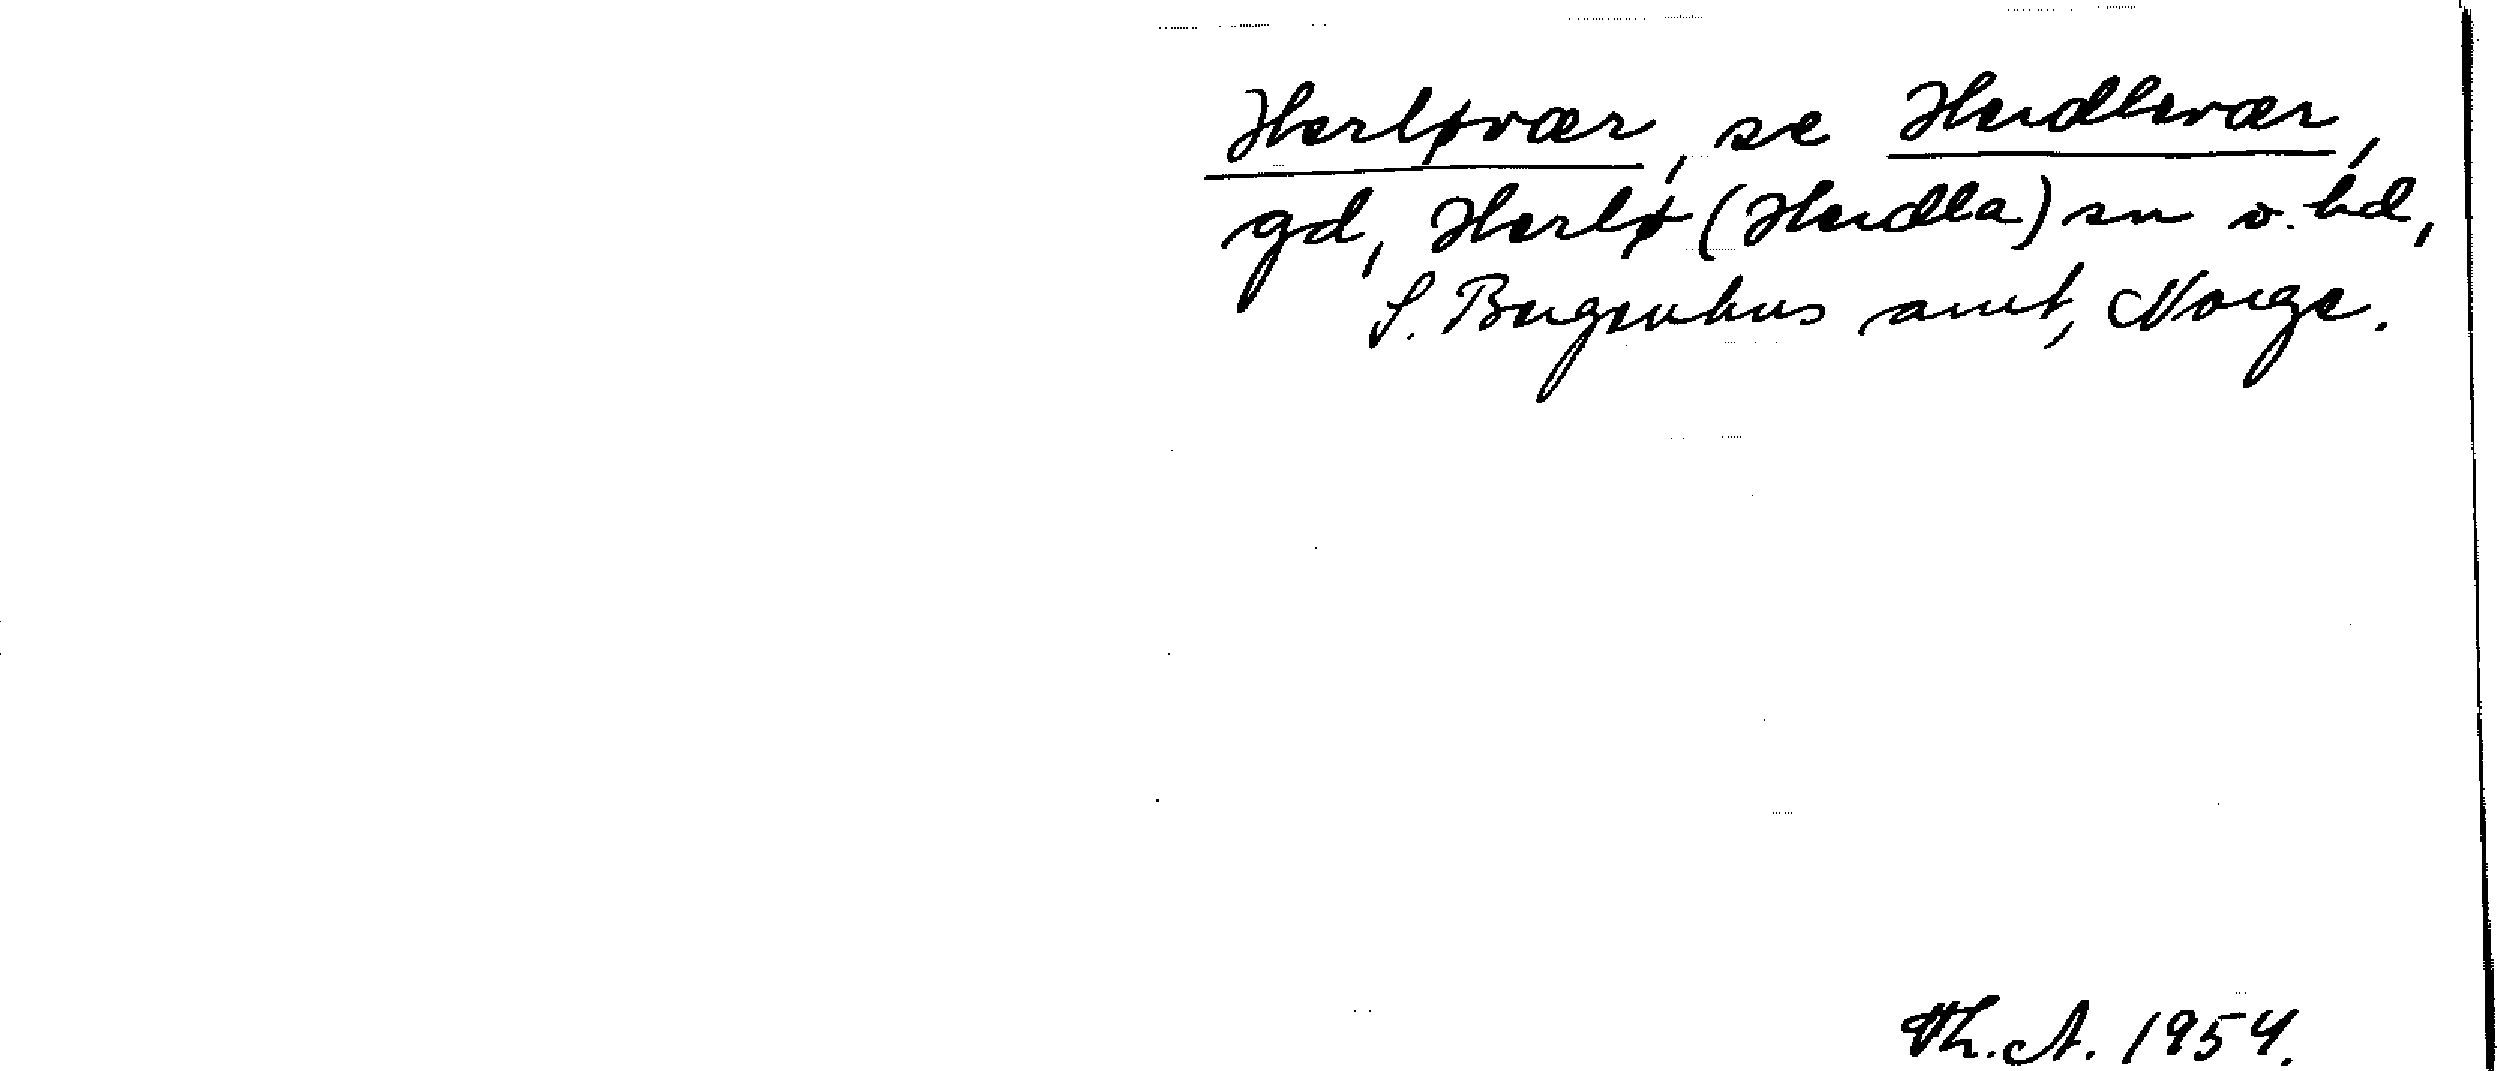 Herløvær, se Herdlevær,
gd, Herlø (Herdla) sn o. hd,
S. Bergenhus amt, Norge.
Th. A. 1954.